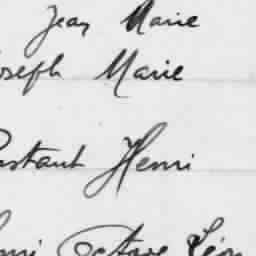 Jean Marie
oseph Marie
onstant Henri
nri Octave Léon